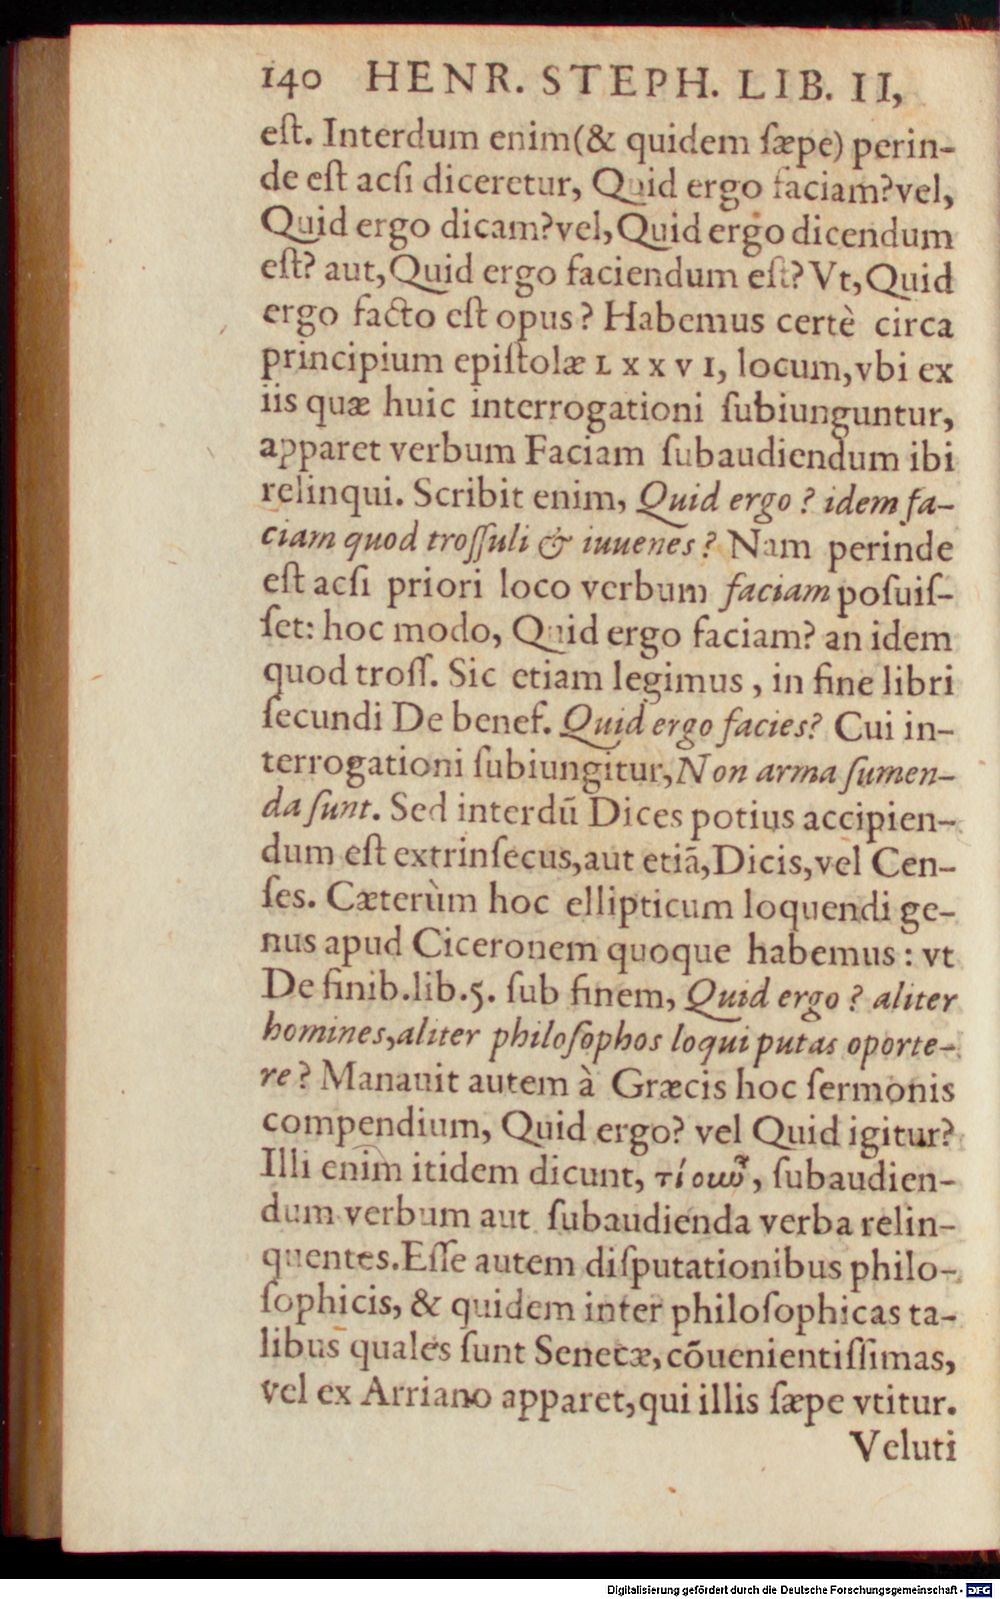 140 HENR. STEPH. LIB. II,
eſt. Interdum enim(& quidem ſæpe) perin-
de eſt acſi diceretur, Quid ergo faciam?vel,
Quid ergo dicam?vel,Quid ergo dicendum
eſt? aut,Quid ergo faciendum eſt? Vt,Quid
ergo facto eſt opus? Habemus certè circa
principium epiſtolæ LXXVI, locum,vbi ex
iis quæ huic interrogationi ſubiunguntur,
apparet verbum Faciam ſubaudiendum ibi
relinqui. Scribit enim, Quid ergo? idem fa-
ciam quod troſſuli & iuuenes? Nam perinde
eſt acſi priori loco verbum faciam poſuiſ-
ſet: hoc modo, Quid ergo faciam? an idem
quod troſſ. Sic etiam legimus, in fine libri
ſecundi De benef. Quid ergo facies? Cui in-
terrogationi ſubiungitur,Non arma ſumen-
da ſunt. Sed interdū Dices potius accipien-
dum eſt extrinſecus,aut etiā,Dicis,vel Cen-
ſes. Cæterùm hoc ellipticum loquendi ge-
nus apud Ciceronem quoque habemus: vt
De finib.lib.5. ſub finem, Quid ergo? aliter
homines,aliter philoſophos loqui putas oporte-
re? Manauit autem à Græcis hoc ſermonis
compendium, Quid ergo? vel Quid igitur?
Illi enim itidem dicunt, τί οὖν, ſubaudien-
dum verbum aut ſubaudienda verba relin-
quentes.Eſſe autem diſputationibus philo-
ſophicis, & quidem inter philoſophicas ta-
libus quales ſunt Senecæ,cōuenientiſſimas,
vel ex Arriano apparet,qui illis ſæpe vtitur.
Veluti
Digitalisierung gefördert durch die Deutsche Forschungsgemeinschaft - DFG